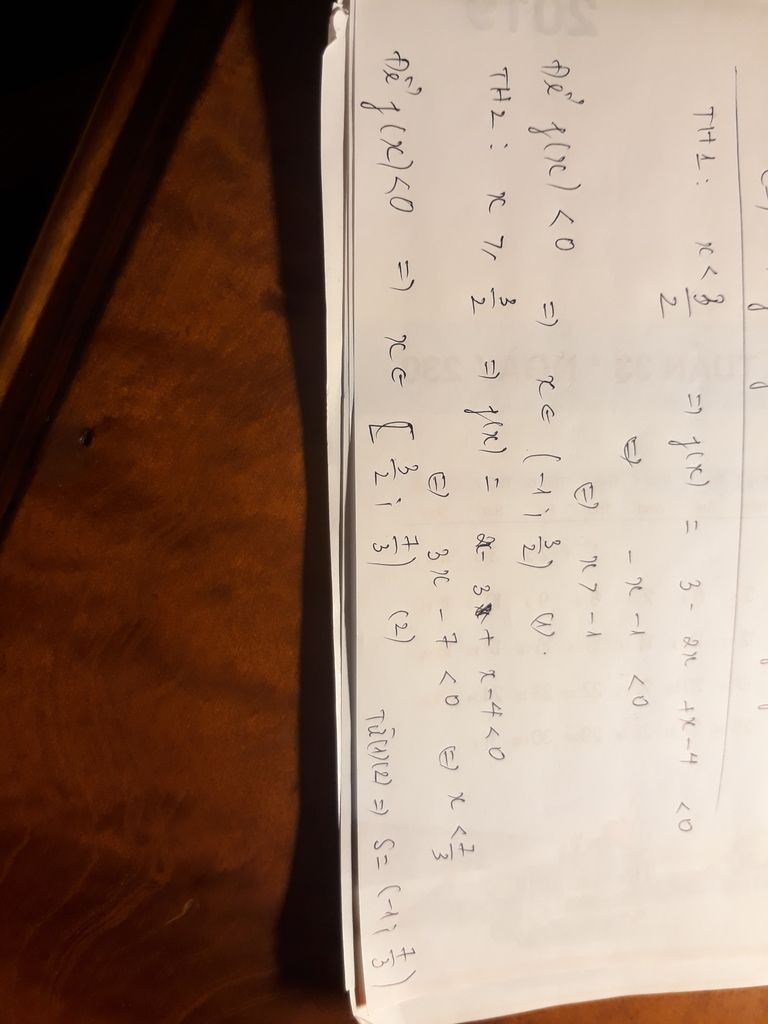 TH1: x < 3/2 => f(x) = 3 - 2x + x - 4 < 0
<=> -x - 1 < 0
<=> x > -1
Để f(x) < 0 => x ∈ (-1; 3/2) (1).
TH2: x ≥ 3/2 => f(x) = 2x - 3 + x - 4 < 0
<=> 3x - 7 < 0 <=> x < 7/3
Để f(x) < 0 => x ∈ [3/2; 7/3) (2)
Từ (1)(2) => S = (-1; 7/3)
2019
TUẦN 33 * NGÀY 230